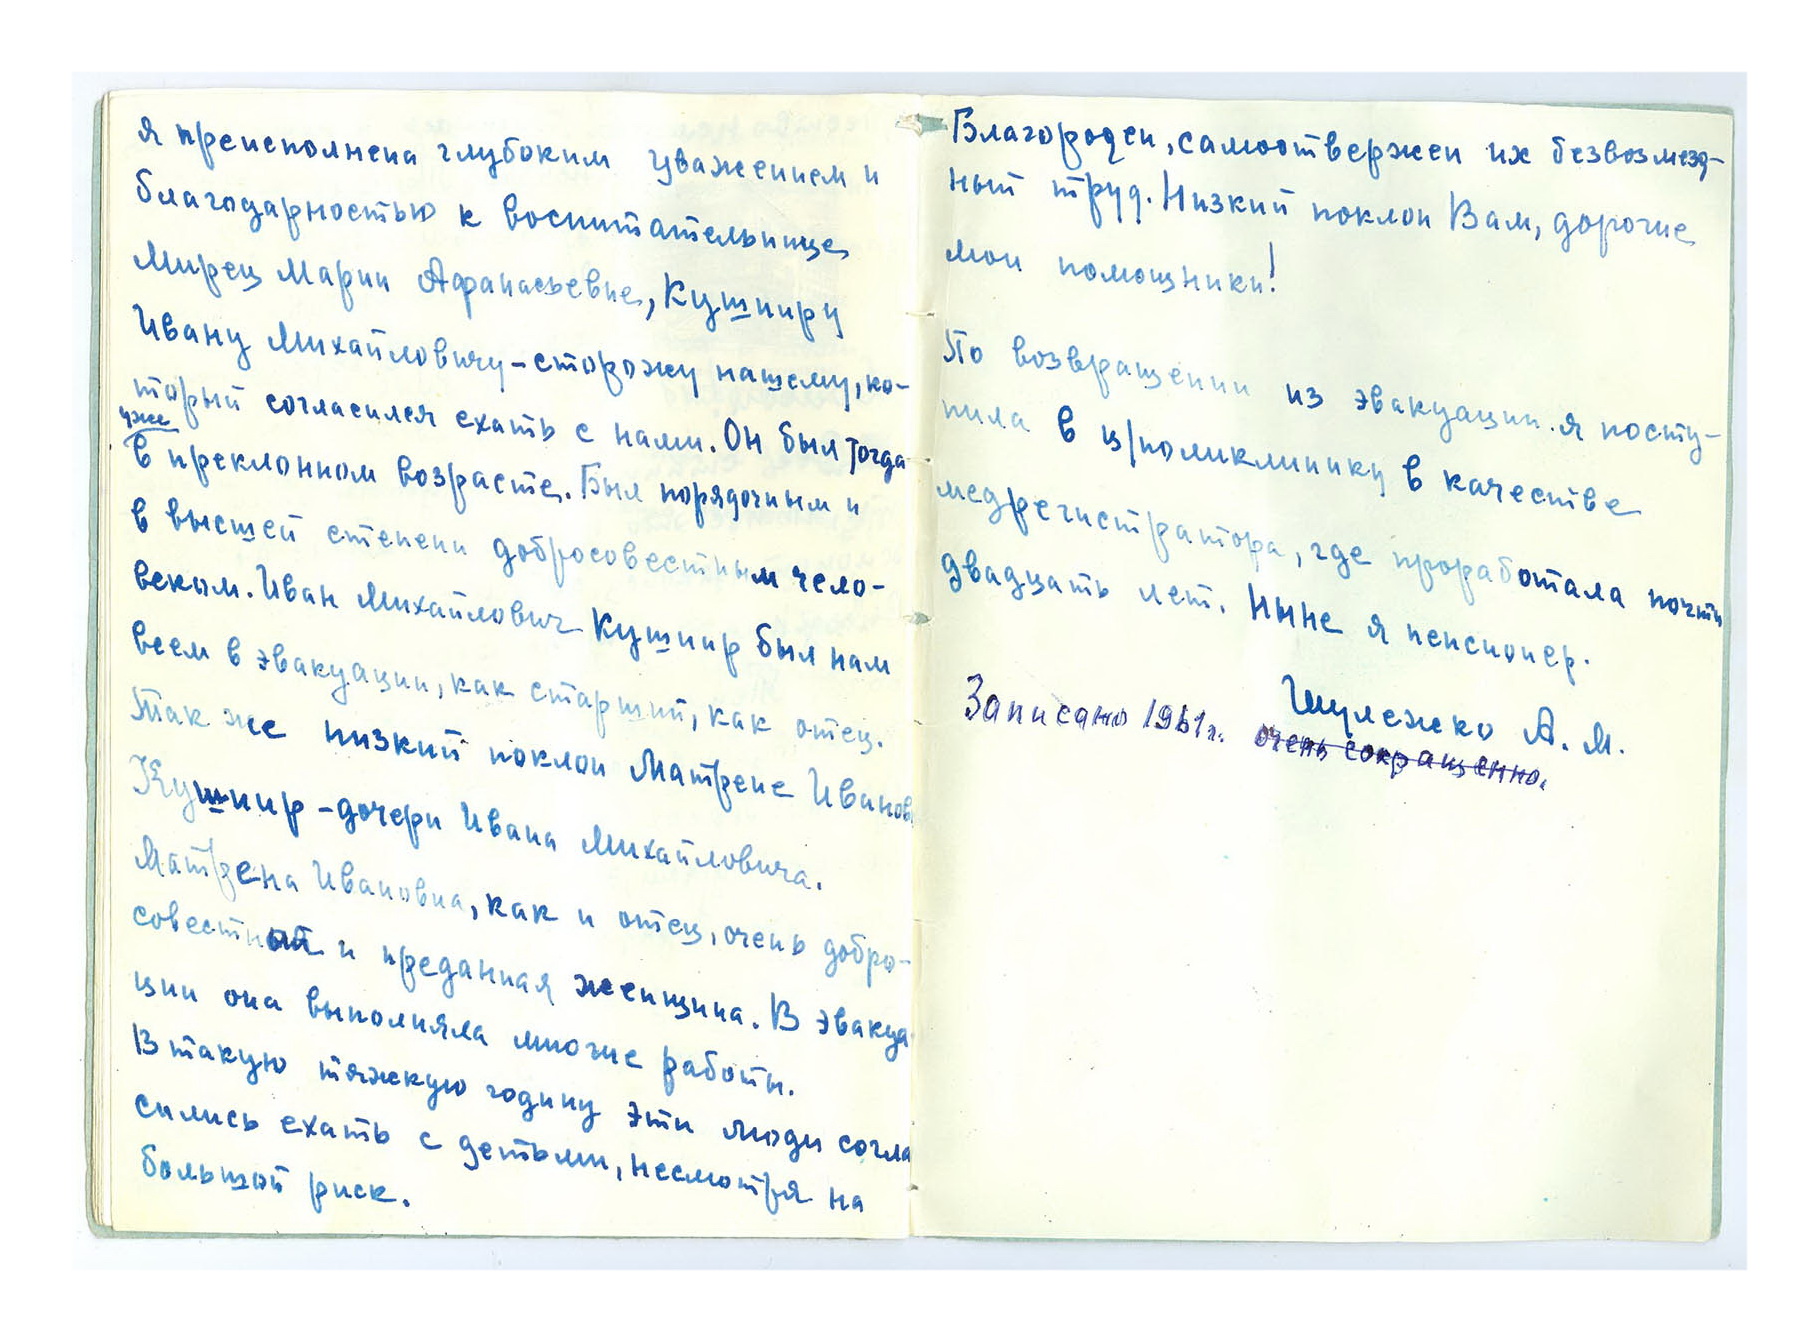 я преисполнена глубоким уважением и
благодарностью к воспитательнице
Мирец Марии Афанасьевне, Кушниру
Ивану Михайловичу-сторожу нашему, ко-
торый согласился ехать с нами. Он был тогда
уже
в преклонном возрасте. Был порядочным и
в высшей степени добросовестным чело-
веком. Иван Михайлович Кушнир был нам
всем в эвакуации, как старший, как отец.
Так же низкий поклон Матрене Ивановне
Кушнир-дочери Ивана Михайловича.
Матрена Ивановна, как и отец, очень добро-
совестный и преданная женщина. В эвакуа-
ции она выполняла многие работы.
В такую тяжкую годину эти люди согла
сились ехать с детьми, несмотря на
большой риск.
Благороден, самоотвержен их безвозмезд-
ный труд. Низкий поклон Вам, дорогие
мои помощники!
По возвращении из эвакуации я посту-
пила в ц/поликлинику в качестве
медрегистратора, где проработала почти
двадцать лет. Ныне я пенсионер.
Шулежко А. М.
Записано 1961г. очень сокращенно.